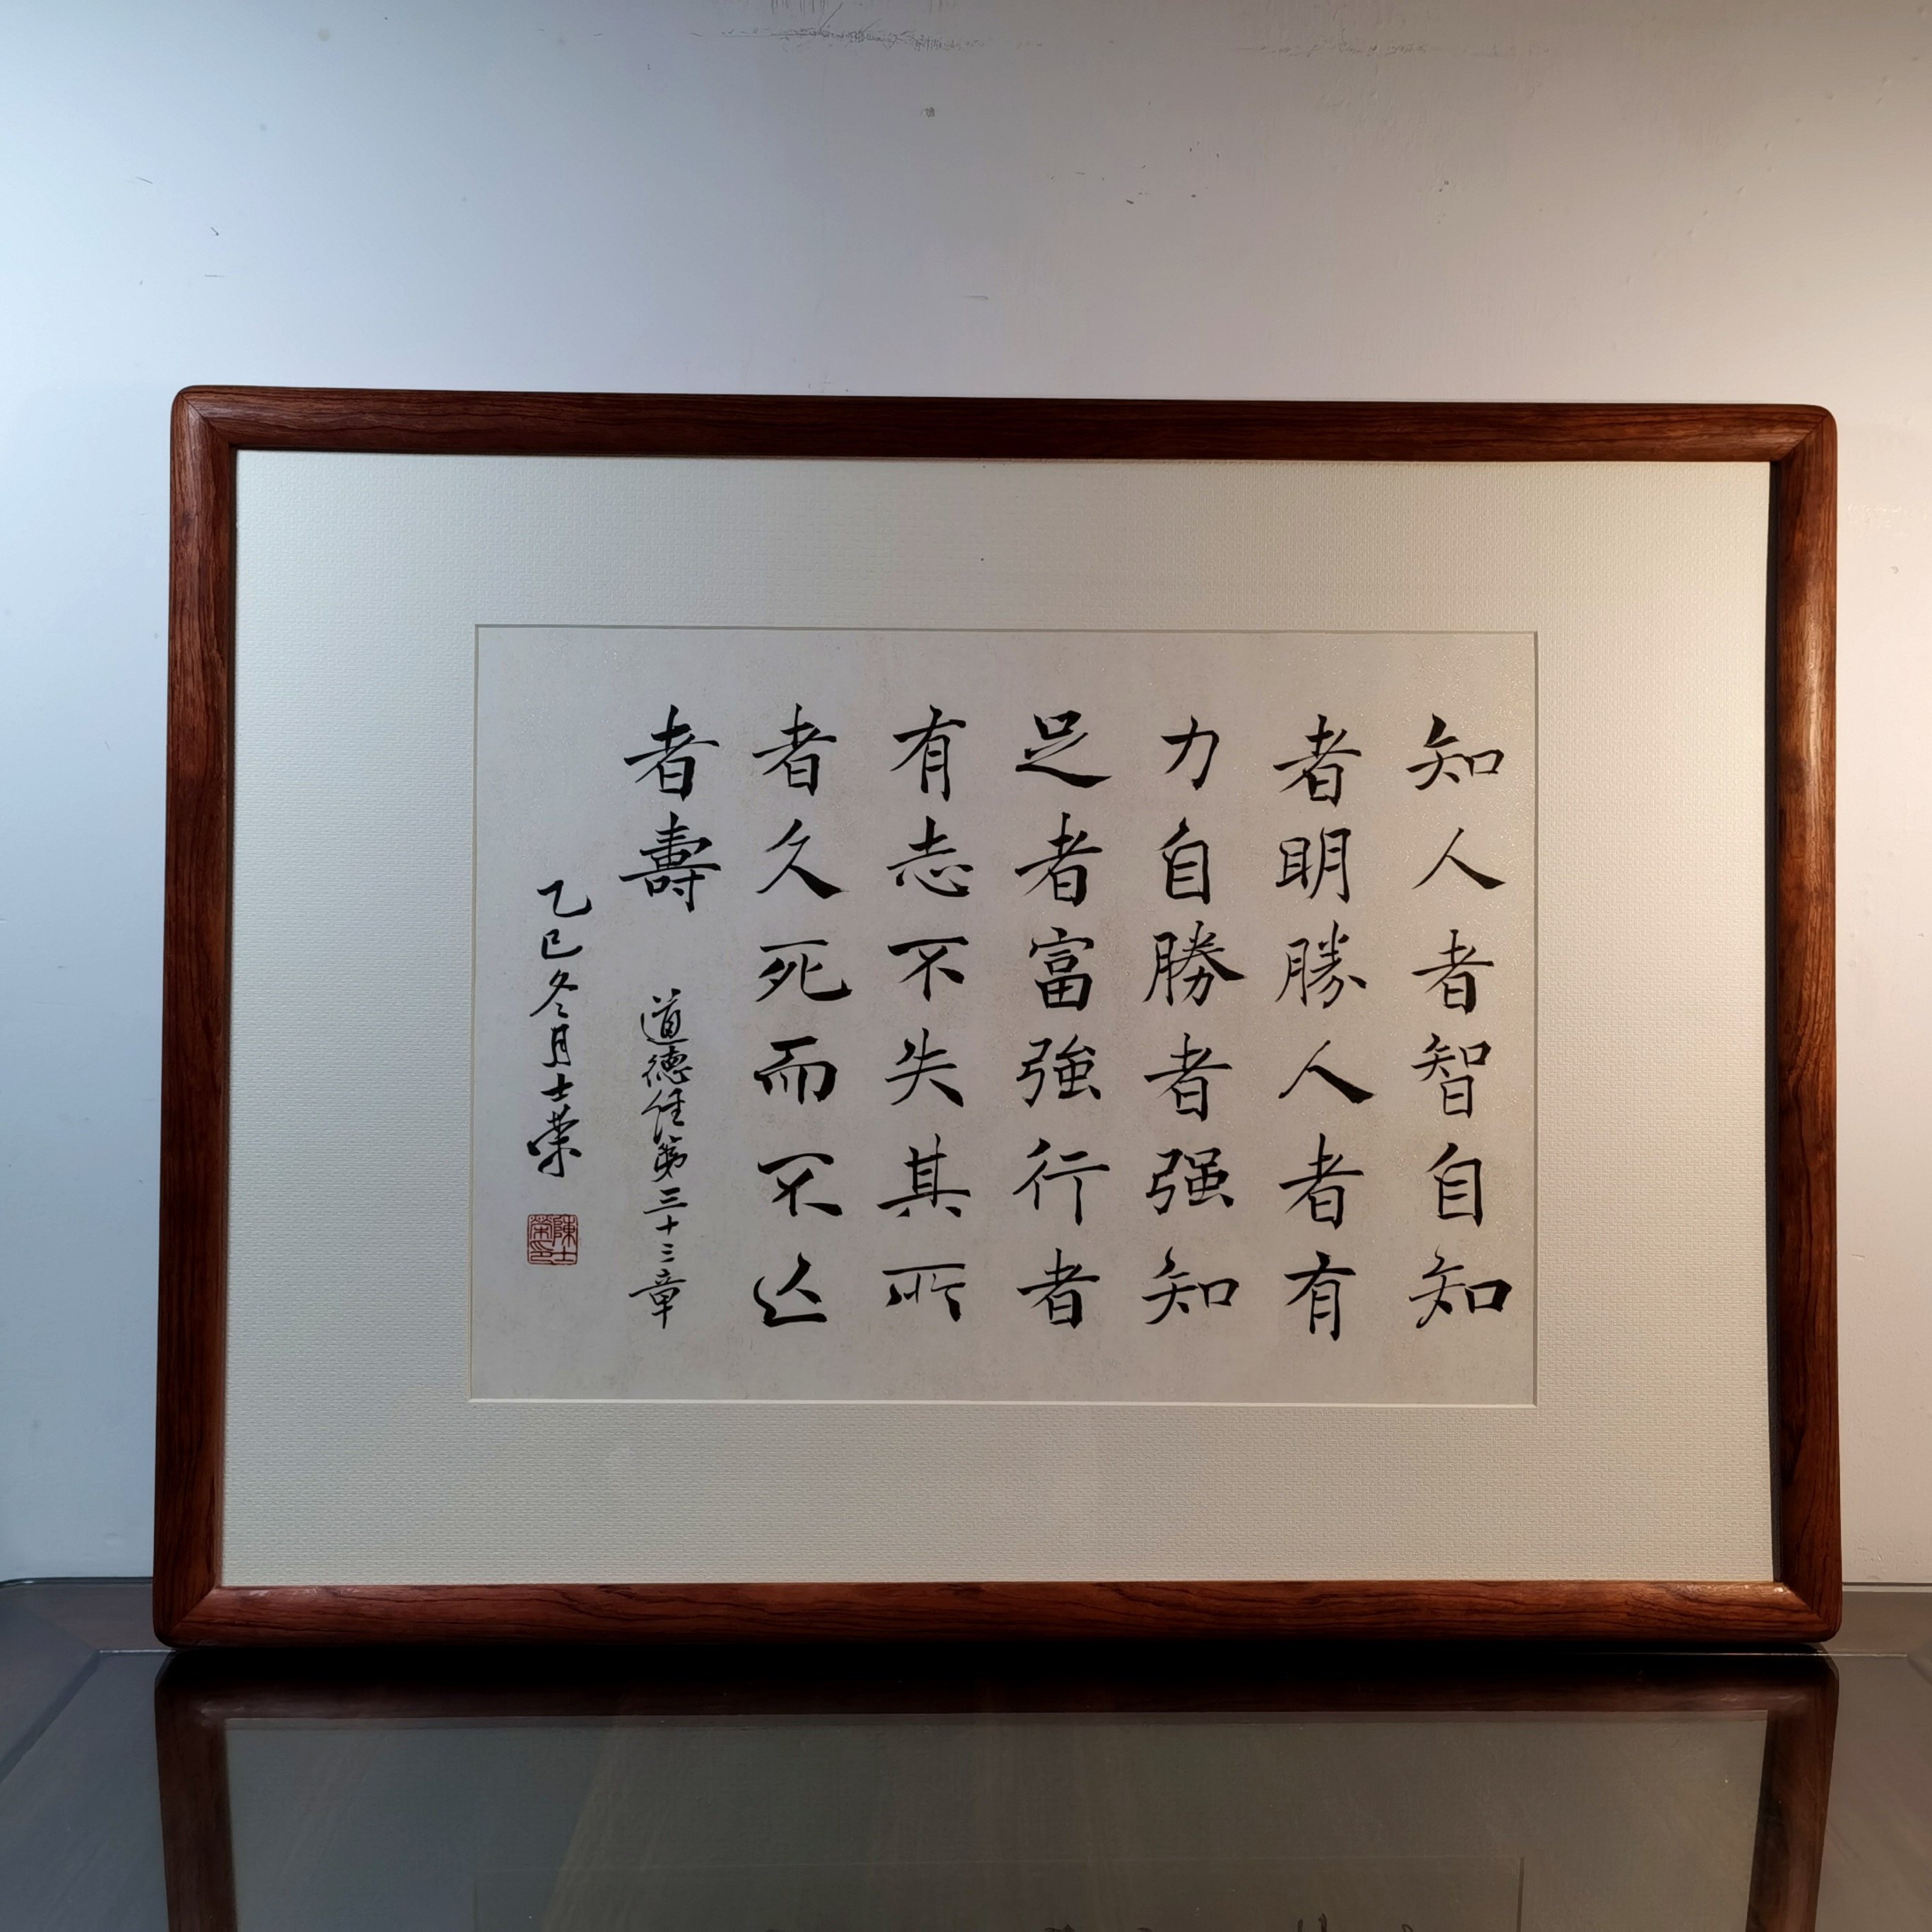 知人者智自知
者明勝人者有
力自勝者强知
足者富強行者
有志不失其所
者久死而不亾
者壽
道德经第三十三章
乙巳冬月士荣
陳士榮印